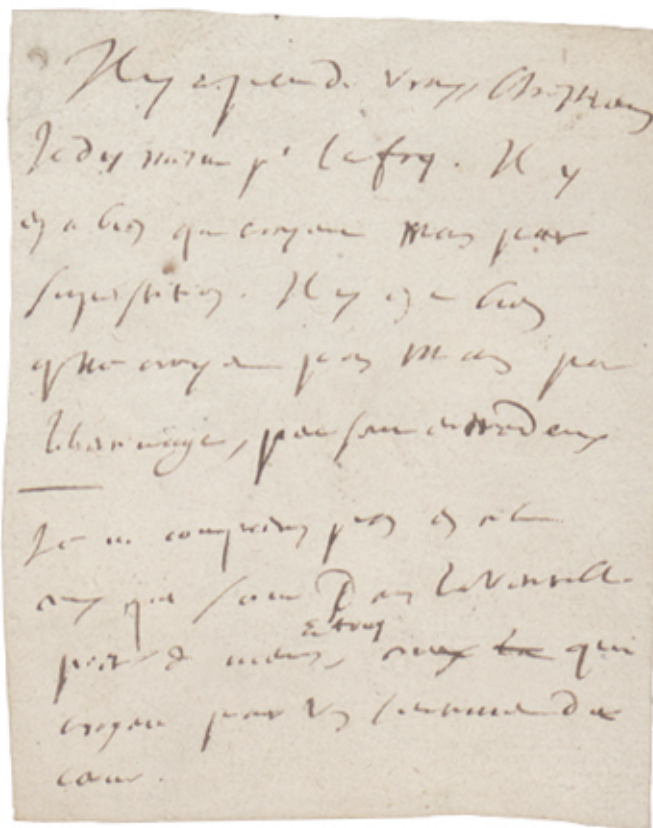 Il y a peu de vrays Chrestiens
Je dis mesme pr la foy. Il y
en a bien qui croyent mais par
superstition. Il y en a bien
qui ne croyent pas mais par
libertinage, peu sont entre deux
Je ne comprens pas en cela
ceux qui sont dans la veritable
pieté de mœurs, et tous ceux qui
croyent par un sentiment de
cœur.